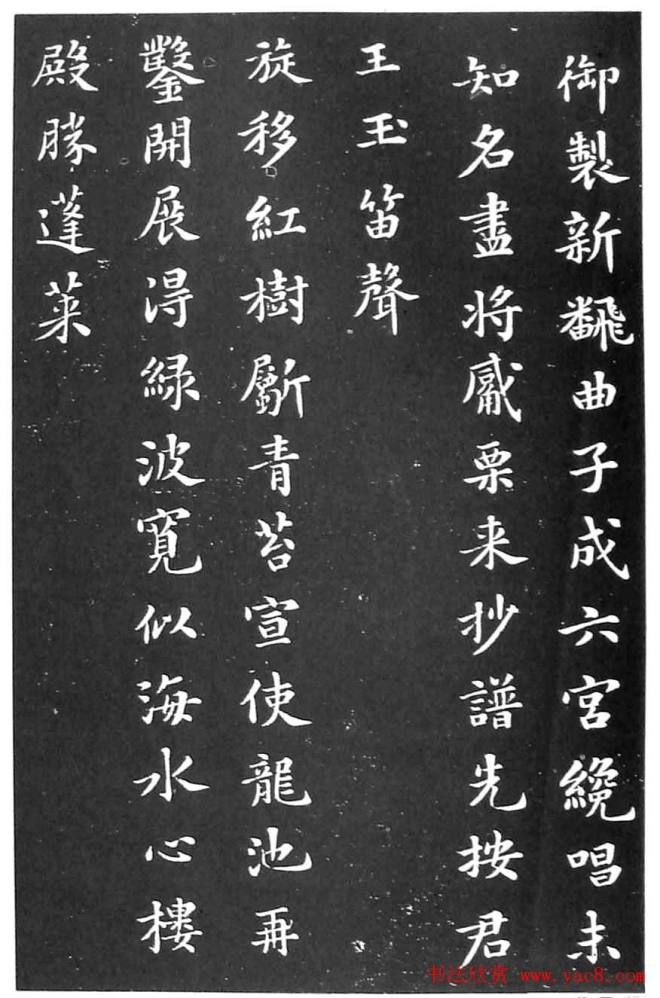 御製新飜曲子成六宮纔唱未
知名盡將觱栗来抄譜先按君
王玉笛聲
旋移紅樹斸青苔宣使龍池再
鑿開展得綠波寬似海水心樓
殿勝蓬萊
书法欣赏 www.yac8.com